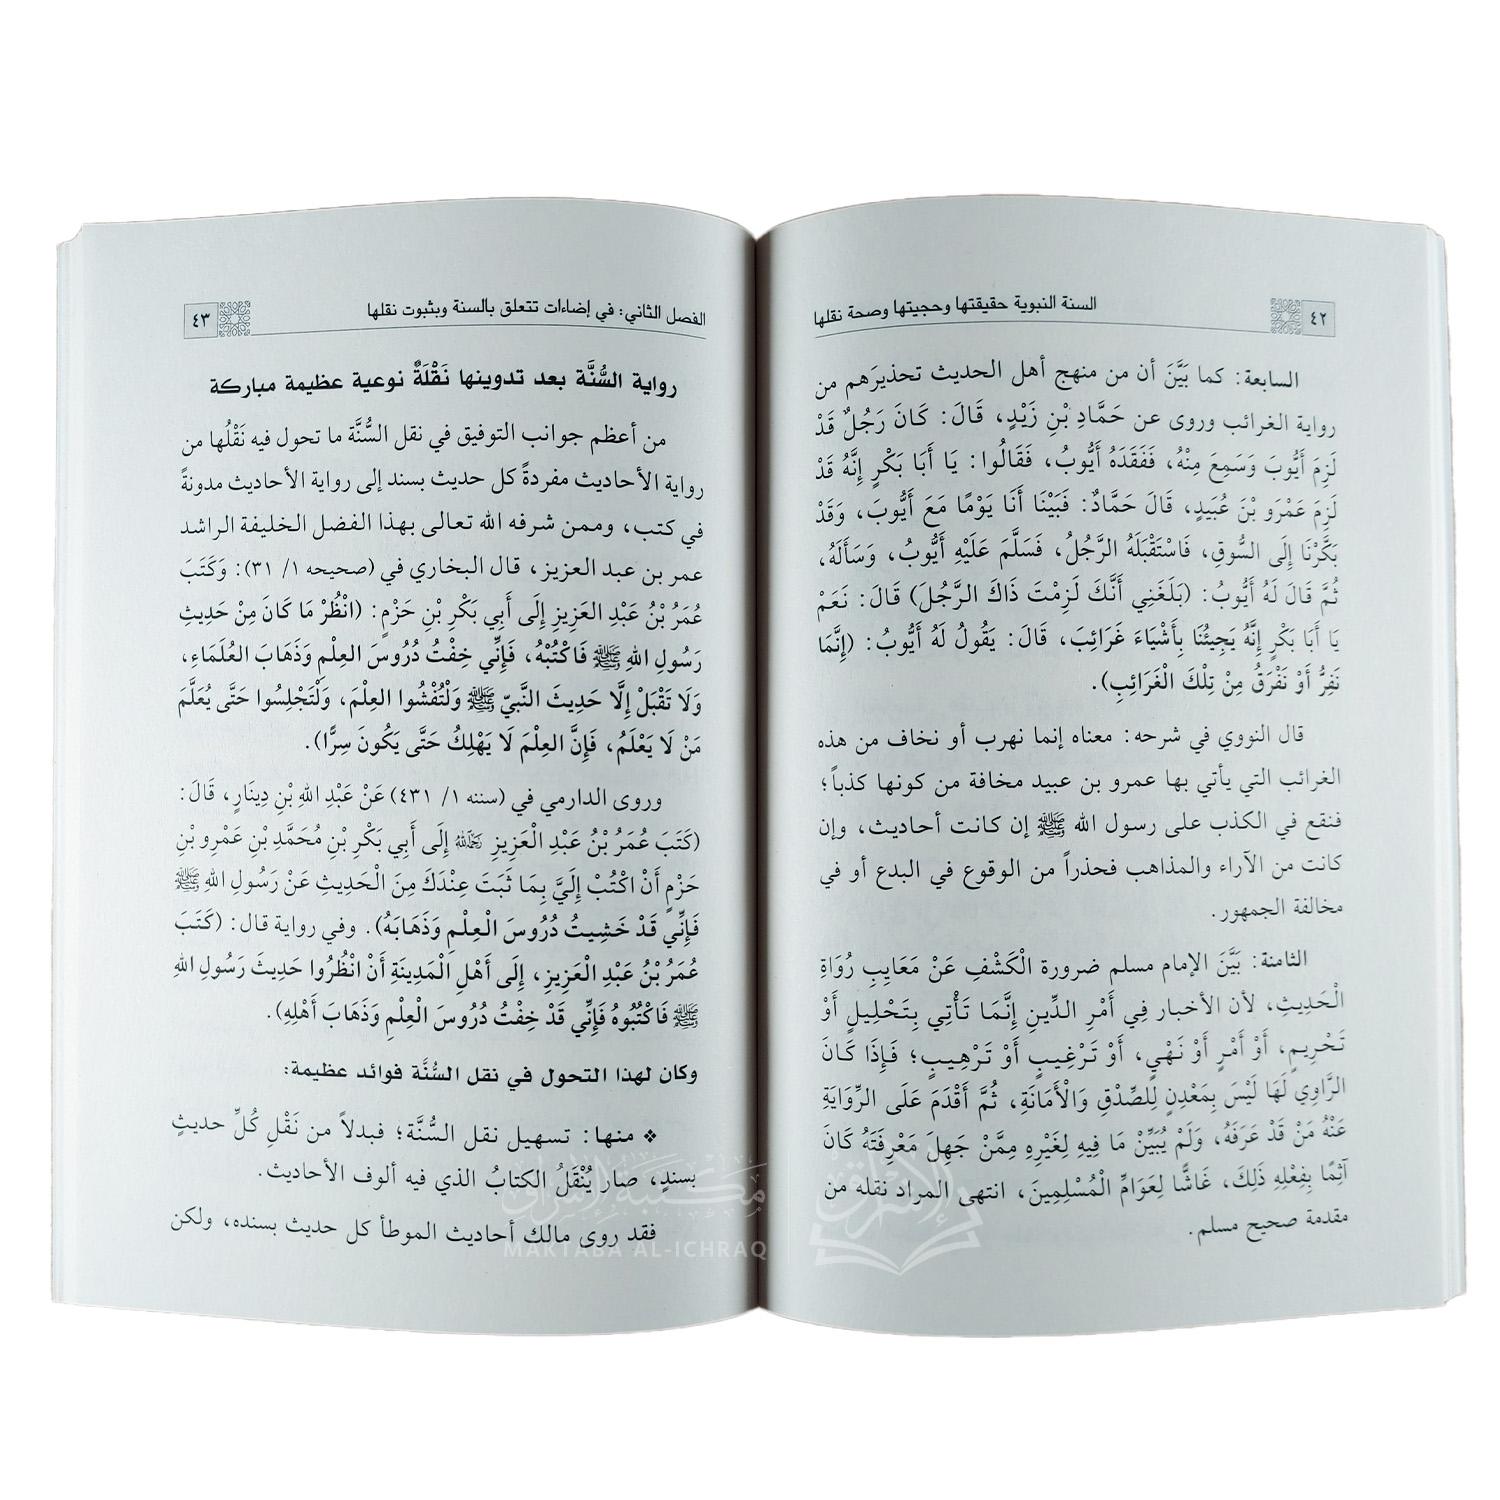 ٤٢ السنة النبوية حقيقتها وحجيتها وصحة نقلها
السابعة: كما بَيَّنَ أن من منهج أهل الحديث تحذيرَهم من
رواية الغرائب وروى عن حَمَّادِ بْنِ زَيْدٍ، قَالَ: كَانَ رَجُلٌ قَدْ
لَزِمَ أَيُّوبَ وَسَمِعَ مِنْهُ، فَفَقَدَهُ أَيُّوبُ، فَقَالُوا: يَا أَبَا بَكْرٍ إِنَّهُ قَدْ
لَزِمَ عَمْرَو بْنَ عُبَيدٍ، قَالَ حَمَّادٌ: فَبَيْنَا أَنَا يَوْمًا مَعَ أَيُّوبَ، وَقَدْ
بَكَّرْنَا إِلَى السُّوقِ، فَاسْتَقْبَلَهُ الرَّجُلُ، فَسَلَّمَ عَلَيْهِ أَيُّوبُ، وَسَأَلَهُ،
ثُمَّ قَالَ لَهُ أَيُّوبُ: (بَلَغَنِي أَنَّكَ لَزِمْتَ ذَاكَ الرَّجُلَ) قَالَ: نَعَمْ
يَا أَبَا بَكْرٍ إِنَّهُ يَجِيئُنَا بِأَشْيَاءَ غَرَائِبَ، قَالَ: يَقُولُ لَهُ أَيُّوبُ: (إِنَّمَا
نَفِرُّ أَوْ نَفْرَقُ مِنْ تِلْكَ الْغَرَائِبِ).
قال النووي في شرحه: معناه إنما نهرب أو نخاف من هذه
الغرائب التي يأتي بها عمرو بن عبيد مخافة من كونها كذباً؛
فنقع في الكذب على رسول الله ﷺ إن كانت أحاديث، وإن
كانت من الآراء والمذاهب فحذراً من الوقوع في البدع أو في
مخالفة الجمهور.
الثامنة: بَيَّنَ الإمام مسلم ضرورة الْكَشْفِ عَنْ مَعَايِبِ رُوَاةِ
الْحَدِيثِ، لأن الأخبار فِي أَمْرِ الدِّينِ إِنَّمَا تَأْتِي بِتَحْلِيلٍ أَوْ
تَحْرِيمٍ، أَوْ أَمْرٍ أَوْ نَهْيٍ، أَوْ تَرْغِيبٍ أَوْ تَرْهِيبٍ؛ فَإِذَا كَانَ
الرَّاوِي لَهَا لَيْسَ بِمَعْدِنٍ لِلصِّدْقِ وَالْأَمَانَةِ، ثُمَّ أَقْدَمَ عَلَى الرِّوَايَةِ
عَنْهُ مَنْ قَدْ عَرَفَهُ، وَلَمْ يُبَيِّنْ مَا فِيهِ لِغَيْرِهِ مِمَّنْ جَهِلَ مَعْرِفَتَهُ كَانَ
آثِمًا بِفِعْلِهِ ذَلِكَ، غَاشًّا لِعَوَامِّ الْمُسْلِمِينَ، انتهى المراد نقله من
مقدمة صحيح مسلم.
الفصل الثاني: في إضاءات تتعلق بالسنة وبثبوت نقلها ٤٣
رواية السُّنَّة بعد تدوينها نَقْلَةٌ نوعية عظيمة مباركة
من أعظم جوانب التوفيق في نقل السُّنَّة ما تحول فيه نَقْلُها من
رواية الأحاديث مفردةً كل حديث بسند إلى رواية الأحاديث مدونةً
في كتب، وممن شرفه الله تعالى بهذا الفضل الخليفة الراشد
عمر بن عبد العزيز، قال البخاري في (صحيحه ١/ ٣١): وَكَتَبَ
عُمَرُ بْنُ عَبْدِ العَزِيزِ إِلَى أَبِي بَكْرِ بْنِ حَزْمٍ: (انْظُرْ مَا كَانَ مِنْ حَدِيثِ
رَسُولِ اللهِ ﷺ فَاكْتُبْهُ، فَإِنِّي خِفْتُ دُرُوسَ العِلْمِ وَذَهَابَ العُلَمَاءِ،
وَلَا تَقْبَلْ إِلَّا حَدِيثَ النَّبِيِّ ﷺ وَلْتُفْشُوا العِلْمَ، وَلْتَجْلِسُوا حَتَّى يُعَلَّمَ
مَنْ لَا يَعْلَمُ، فَإِنَّ العِلْمَ لَا يَهْلِكُ حَتَّى يَكُونَ سِرًّا).
وروى الدارمي في (سننه ١/ ٤٣١) عَنْ عَبْدِ اللهِ بْنِ دِينَارٍ، قَالَ:
(كَتَبَ عُمَرُ بْنُ عَبْدِ الْعَزِيزِ رَحِمَهُ اللهُ إِلَى أَبِي بَكْرِ بْنِ مُحَمَّدِ بْنِ عَمْرِو بْنِ
حَزْمٍ أَنْ اكْتُبْ إِلَيَّ بِمَا ثَبَتَ عِنْدَكَ مِنَ الْحَدِيثِ عَنْ رَسُولِ اللهِ ﷺ
فَإِنِّي قَدْ خَشِيتُ دُرُوسَ الْعِلْمِ وَذَهَابَهُ). وفي رواية قال: (كَتَبَ
عُمَرُ بْنُ عَبْدِ الْعَزِيزِ، إِلَى أَهْلِ الْمَدِينَةِ أَنْ انْظُرُوا حَدِيثَ رَسُولِ اللهِ
ﷺ فَاكْتُبُوهُ فَإِنِّي قَدْ خِفْتُ دُرُوسَ الْعِلْمِ وَذَهَابَ أَهْلِهِ).
وكان لهذا التحول في نقل السُّنَّة فوائد عظيمة:
❖ منها: تسهيل نقل السُّنَّة؛ فبدلاً من نَقْلِ كُلِّ حديثٍ
بسندٍ، صار يُنْقَلُ الكتابُ الذي فيه ألوف الأحاديث.
فقد روى مالك أحاديث الموطأ كل حديث بسنده، ولكن
مكتبة الإشراق
MAKTABA AL-ICHRAQ
الإشراق